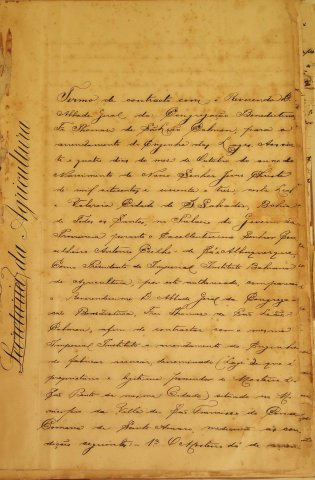 Termo de contracto com o Reverendo D.
Abbade Geral da Congregação Benedictina
Fr. Thomaz de São Leão Calmon, para o
arrendamento do Engenho das Lages. Aos vin
te e quatro dias do mez de Outubro do anno do
Nascimento de Nosso Senhor Jesus Christo
de mil oitocentos e sessenta e tres, nesta Leal
e Valorosa Cidade do S. Salvador, Bahia
de Todos os Santos, no Palacio do Governo da
Provincia perante o Excellentissimo Senhor Con
selheiro Antonio Coelho de Sá e Albuquerque,
Como Presidente do Imperial Instituto Bahiano
de Agricultura, por este authorisado, compareceu
o Reverendissimo D. Abbade Geral da Congrega
ção Benedictina, Frei Thomaz de São Leão
Calmon, afim de contractar com o mesmo
Imperial Instituto o arrendamento do Engenho
de fabricar assucar, denominado (Lage) de que é
proprietario e legitimo possuidor o Mosteiro de
São Bento da mesma Cidade) situado no Mu
nicipio da Villa de São Francisco da
Comarca de Santo Amaro, mediante as con
dições seguintes. 1ª O Mosteiro dá de
Secretaria da Agricultura